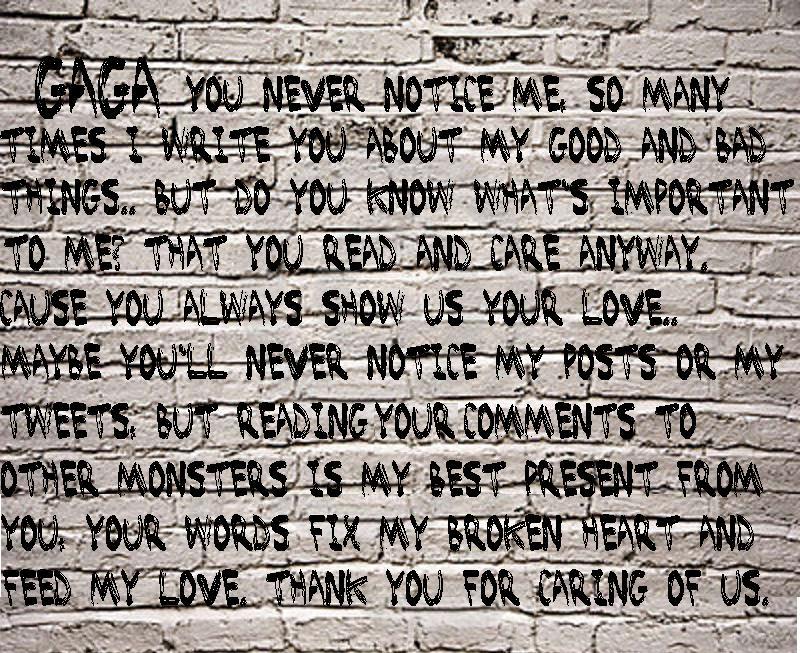 GAGA YOU NEVER NOTICE ME. SO MANY
TIMES I WRITE YOU ABOUT MY GOOD AND BAD
THINGS.. BUT DO YOU KNOW WHAT'S IMPORTANT
TO ME? THAT YOU READ AND CARE ANYWAY.
CAUSE YOU ALWAYS SHOW US YOUR LOVE..
MAYBE YOU'LL NEVER NOTICE MY POSTS OR MY
TWEETS. BUT READING YOUR COMMENTS TO
OTHER MONSTERS IS MY BEST PRESENT FROM
YOU. YOUR WORDS FIX MY BROKEN HEART AND
FEED MY LOVE. THANK YOU FOR CARING OF US.